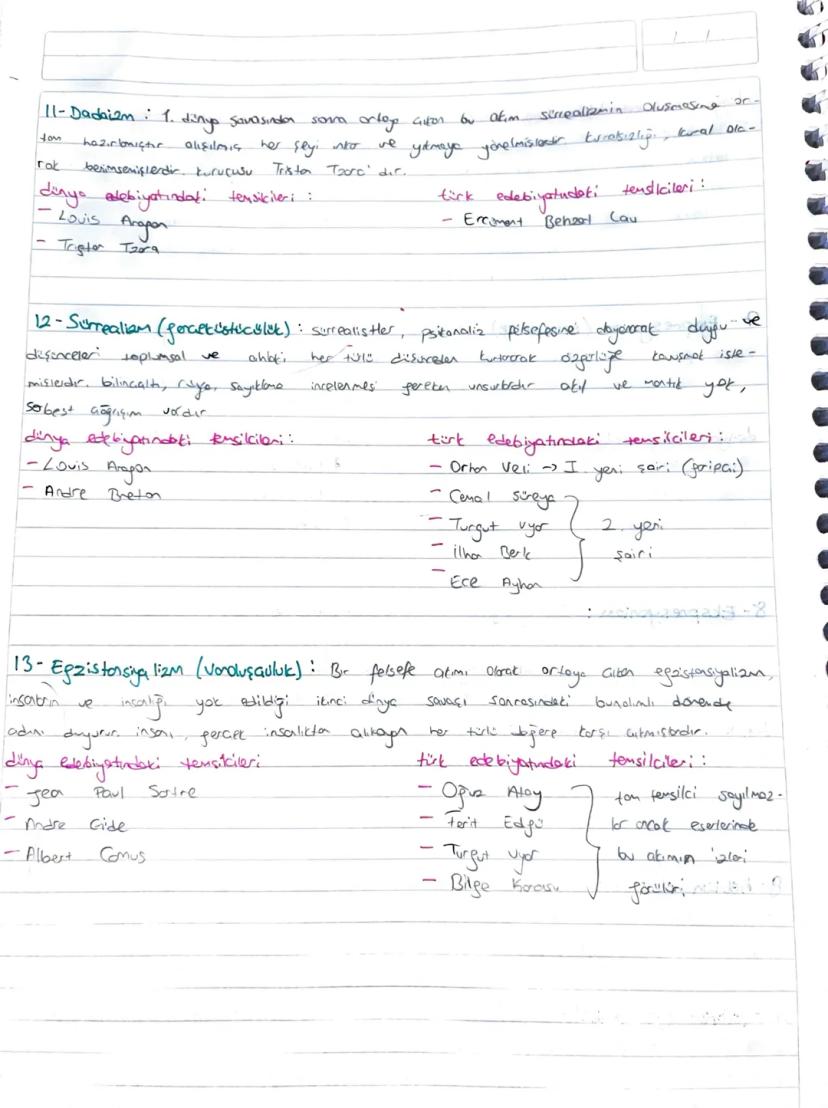 11- Dadaizm : 1. dünya savaşından sonra ortaya çıkan bu akım sürrealizmin oluşmasına or-
tam hazırlamıştır alışılmış her şeyi inkar ve yıkmaya yönelmişlerdir. kuralsızlığı, kural ola-
rak benimsemişlerdir. kurucusu Tristan Tzara' dır.
dünya edebiyatındaki temsilcileri :
türk edebiyatındaki temsilcileri :
- Louis Aragon
- Ercüment Behzad Lau
- Tristan Tzara
12- Sürrealizm (gerçeküstücülük) : sürrealistler, psikanaliz felsefesine dayanarak duygu ve
düşünceleri toplumsal ve ahlaki, her türlü düşünceden kurtararak özgürlüğe kavuşmak iste-
mişlerdir. bilinçaltı, rüya, sayıklama incelenmesi gereken unsurlardır akıl ve mantık yok,
serbest çağrışım vardır
dünya edebiyatındaki temsilcileri :
türk edebiyatındaki temsilcileri :
- Louis Aragon
- Orhan Veli -> I. yeni şairi (garipçi)
- Andre Breton
- Cemal Süreya
- Turgut Uyar
- İlhan Berk
- Ece Ayhan
2. yeni
şairi
13- Egzistansiyalizm (Varoluşçuluk) : Bir felsefe akımı olarak ortaya çıkan egzistansiyalizm,
insanların ve insanlığı yok edildiği ikinci dünya savaşı sonrasındaki bunalımlı dönemde
adını duyurur. insanı, gerçek insanlıktan alıkoyan her türlü değere karşı çıkmışlardır.
dünya edebiyatındaki temsilcileri
türk edebiyatındaki temsilcileri :
- Jean Paul Sartre
- Andre Gide
- Albert Camus
- Oğuz Atay
- Ferit Edgü
- Turgut Uyar
- Bilge Karasu
tam temsilci sayılmaz-
lar ancak eserlerinde
bu akımın izleri
görülür.